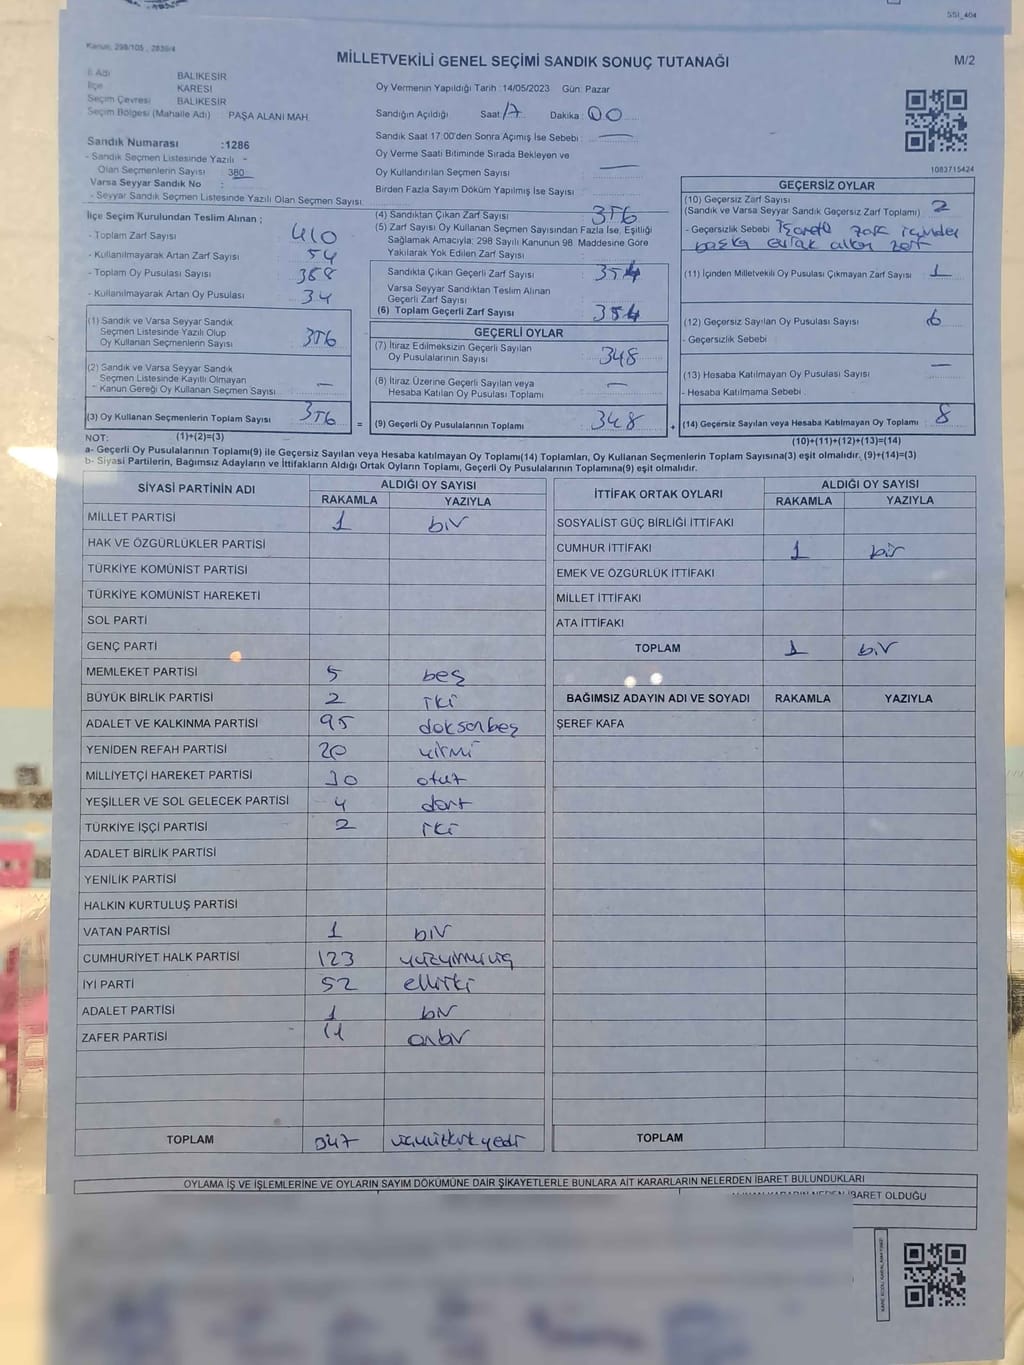 SSI_404
Kanun: 298/105 , 2839/4
MİLLETVEKİLİ GENEL SEÇİMİ SANDIK SONUÇ TUTANAĞI
M/2
İl Adı BALIKESİR
İlçe KARESİ
Seçim Çevresi BALIKESİR
Seçim Bölgesi (Mahalle Adı) PAŞA ALANI MAH.
Sandık Numarası :1286
- Sandık Seçmen Listesinde Yazılı
Olan Seçmenlerin Sayısı : 380
Varsa Seyyar Sandık No :
- Seyyar Sandık Seçmen Listesinde Yazılı Olan Seçmen Sayısı:
Oy Vermenin Yapıldığı Tarih :14/05/2023 Gün: Pazar
Sandığın Açıldığı Saat: 17 Dakika : 00
Sandık Saat 17.00'den Sonra Açımış İse Sebebi :
Oy Verme Saati Bitiminde Sırada Bekleyen ve
Oy Kullandırılan Seçmen Sayısı :
Birden Fazla Sayım Döküm Yapılmış İse Sayısı :
1083715424
İlçe Seçim Kurulundan Teslim Alınan ;
- Toplam Zarf Sayısı 410
- Kullanılmayarak Artan Zarf Sayısı 54
- Toplam Oy Pusulası Sayısı
- Kullanılmayarak Artan Oy Pusulası 34
(1) Sandık ve Varsa Seyyar Sandık
Seçmen Listesinde Yazılı Olup
Oy Kullanan Seçmenlerin Sayısı : 356
(2) Sandık ve Varsa Seyyar Sandık
Seçmen Listesinde Kayıtlı Olmayan
Kanun Gereği Oy Kullanan Seçmen Sayısı : —
(3) Oy Kullanan Seçmenlerin Toplam Sayısı 356
(1)+(2)=(3)
(4) Sandıktan Çıkan Zarf Sayısı 356
(5) Zarf Sayısı Oy Kullanan Seçmen Sayısından Fazla İse, Eşitliği
Sağlamak Amacıyla; 298 Sayılı Kanunun 98 Maddesine Göre
Yakılarak Yok Edilen Zarf Sayısı
Sandıkta Çıkan Geçerli Zarf Sayısı 354
Varsa Seyyar Sandıktan Teslim Alınan
Geçerli Zarf Sayısı
(6) Toplam Geçerli Zarf Sayısı 354
GEÇERLİ OYLAR
(7) İtiraz Edilmeksizin Geçerli Sayılan
Oy Pusulalarının Sayısı : 348
(8) İtiraz Üzerine Geçerli Sayılan veya
Hesaba Katılan Oy Pusulası Toplamı : —
= (9) Geçerli Oy Pusulalarının Toplamı : 348
GEÇERSİZ OYLAR
(10) Geçersiz Zarf Sayısı
(Sandık ve Varsa Seyyar Sandık Geçersiz Zarf Toplamı) : 2
- Geçersizlik Sebebi : İşaretli zarf içinden
başka evrak çıkan zarf
(11) İçinden Milletvekili Oy Pusulası Çıkmayan Zarf Sayısı : 1
(12) Geçersiz Sayılan Oy Pusulası Sayısı : 6
- Geçersizlik Sebebi :
(13) Hesaba Katılmayan Oy Pusulası Sayısı : —
- Hesaba Katılmama Sebebi :
+ (14) Geçersiz Sayılan veya Hesaba Katılmayan Oy Toplamı : 8
(10)+(11)+(12)+(13)=(14)
NOT:
a- Geçerli Oy Pusulalarının Toplamı(9) ile Geçersiz Sayılan veya Hesaba katılmayan Oy Toplamı(14) Toplamları, Oy Kullanan Seçmenlerin Toplam Sayısına(3) eşit olmalıdır. (9)+(14)=(3)
b- Siyasi Partilerin, Bağımsız Adayların ve İttifakların Aldığı Ortak Oyların Toplamı, Geçerli Oy Pusulalarının Toplamına(9) eşit olmalıdır.
SİYASİ PARTİNİN ADI ALDIĞI OY SAYISI
RAKAMLA YAZIYLA
MİLLET PARTİSİ 1 bir
HAK VE ÖZGÜRLÜKLER PARTİSİ
TÜRKİYE KOMÜNİST PARTİSİ
TÜRKİYE KOMÜNİST HAREKETİ
SOL PARTİ
GENÇ PARTİ
MEMLEKET PARTİSİ 5 beş
BÜYÜK BİRLİK PARTİSİ 2 iki
ADALET VE KALKINMA PARTİSİ 95 doksanbeş
YENİDEN REFAH PARTİSİ 20 yirmi
MİLLİYETÇİ HAREKET PARTİSİ 30 otuz
YEŞİLLER VE SOL GELECEK PARTİSİ 4 dört
TÜRKİYE İŞÇİ PARTİSİ 2 iki
ADALET BİRLİK PARTİSİ
YENİLİK PARTİSİ
HALKIN KURTULUŞ PARTİSİ
VATAN PARTİSİ 1 bir
CUMHURİYET HALK PARTİSİ 123 yüzyirmiüç
İYİ PARTİ 52 elliiki
ADALET PARTİSİ 1 bir
ZAFER PARTİSİ 11 onbir
TOPLAM 347 üçyüzkırkyedi
İTTİFAK ORTAK OYLARI ALDIĞI OY SAYISI
RAKAMLA YAZIYLA
SOSYALİST GÜÇ BİRLİĞİ İTTİFAKI
CUMHUR İTTİFAKI 1 bir
EMEK VE ÖZGÜRLÜK İTTİFAKI
MİLLET İTTİFAKI
ATA İTTİFAKI
TOPLAM 1 bir
BAĞIMSIZ ADAYIN ADI VE SOYADI RAKAMLA YAZIYLA
ŞEREF KAFA
TOPLAM
OYLAMA İŞ VE İŞLEMLERİNE VE OYLARIN SAYIM DÖKÜMÜNE DAİR ŞİKAYETLERLE BUNLARA AİT KARARLARIN NELERDEN İBARET BULUNDUKLARI
İBARET OLDUĞU